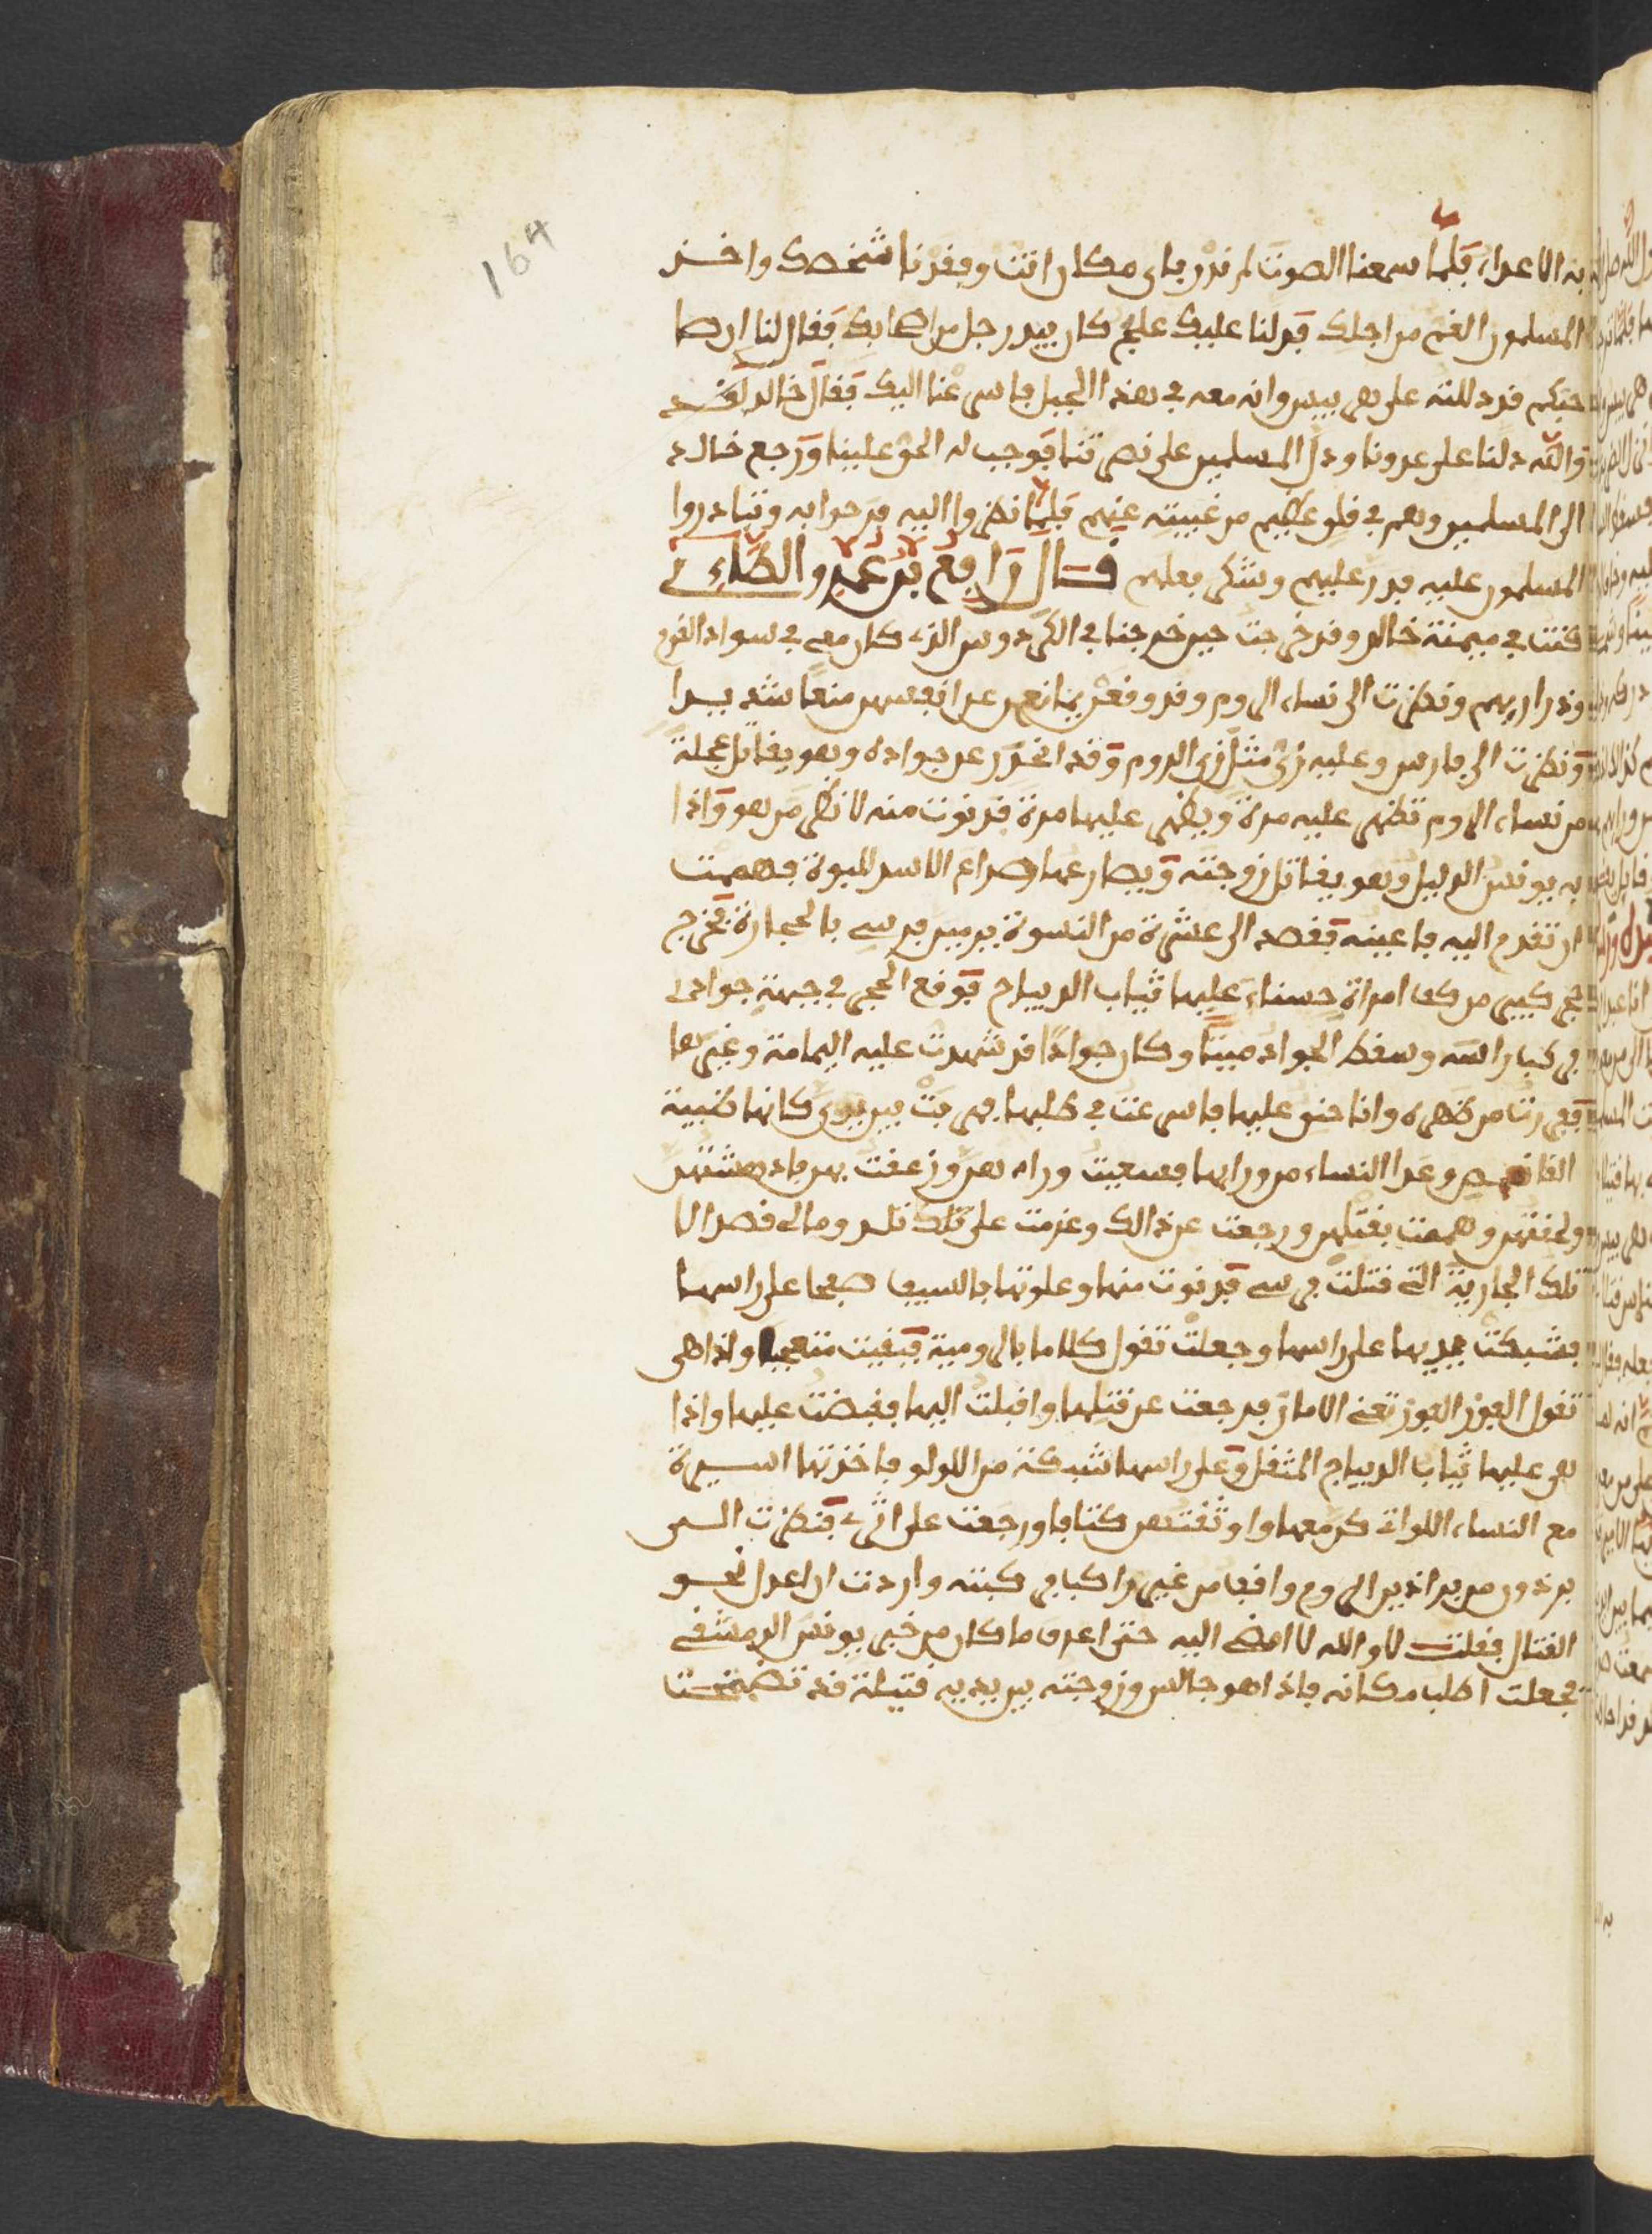 164
به الاعداء فلما سمعنا الصوت لم ندر باي مكان انت وفقدنا شخصك واخذ
المسلمون الغم من اجلك فدلنا عليك علج كان بيد رجل من اصحابك فقال لنا ان صا
حبكم قد دللته على هربيس وانه معه في هذا الجبل فاسرعنا اليك فقال خالد لقد
والله دلنا على عدونا ودل المسلمين على نصرتنا فوجب له الحق علينا ورجع خالد
الى المسلمين وهم في قلق عظيم من غيبته عنهم فلما نظروا اليه فرحوا به وتبادروا
المسلمون عليه فرد عليهم وشكر فعلهم قال رافع بن عمرو الطاءي
كنت في ميمنة خالد وقد خرجت حين خرجنا في الكردوس الذي كان معي في سواد القوم
وذراريهم ونظرت الى نساء الروم وقد وقعن يمانعن عن انفسهن منعا شديدا
ونظرت الى فارس وعليه زي مثل زي الروم وقد انحدر عن جواده وهو يقاتل علجة
من نساء الروم تظهر عليه مرة ويظهر عليها مرة فدنوت منه لانظر من هو واذا
به يونس الدليل وهو يقاتل زوجته ويصارعها صراع الاسد للبوة فهممت
ان تقدم اليه فاعينه فقصد الي عشرة من النسوة يرمين فرسي بالحجارة فخرج
حجر كبير من كف امراة حسناء عليها ثياب الديباج فوقع الحجر في جبهة جوادي
وسقط الجواد ميتا وكان جوادا قد شهدت عليه اليمامة وغيرها
من ظهره وانا حنق عليها فاسرعت في طلبها فهربت بين يدي كانها ظبية
وعدا النساء من ورايها فسعيت وراءهن وزعقت بهن فادهشتهن
ولحقتهن وهممت بقتلهن ورجعت عن ذالك وعزمت على تلك ومالي قصد الا
تلك الجارية التي قتلت فرسي فدنوت منها وعلوتها بالسيف صفحا على راسها
فشبكت بيديها على راسها وجعلت تقول كلاما بالرومية فبقيت متعجبا واذا هي
تقول الغوز الغوز تعني الامان فرجعت عن قتلها واقبلت اليها فقبضت عليها واذا
هي عليها ثياب الديباج المثقل وعلى راسها شبكة من اللولو فاخذتها اسيرة
مع النساء اللواتي كن معها واوثقتهن كتافا ورجعت على اثري فنظرت الى
برذون من براذين الروم واقف من غير راكب فركبته واردت ان اعدل نحو
القتال فقلت لا والله لا امضي اليه حتى اعرف ما كان من خبر يونس الدمشقي
فجعلت اطلب مكانه فاذا هو جالس وزوجته بين يديه قتيلة قد تضمخت